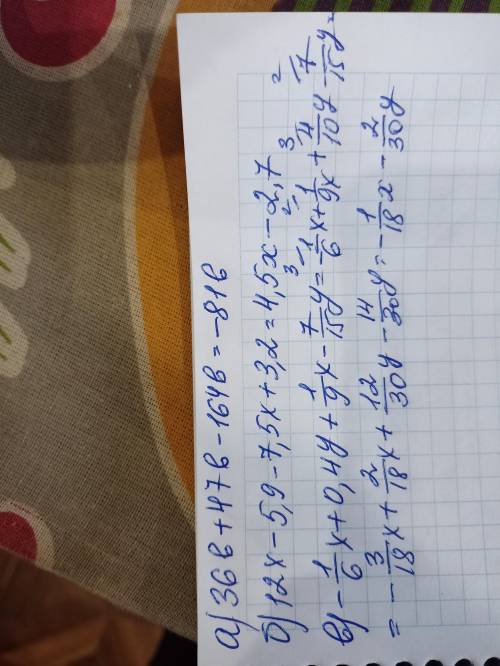 а) 36в + 47в - 164в = -81в
б) 12x - 5,9 - 7,5x + 3,2 = 4,5x - 2,7
в) -1/6 x + 0,4y + 1/9 x - 7/15 y = -1/6 x + 1/9 x + 4/10 y - 7/15 y =
= -3/18 x + 2/18 x + 12/30 y - 14/30 y = -1/18 x - 2/30 y